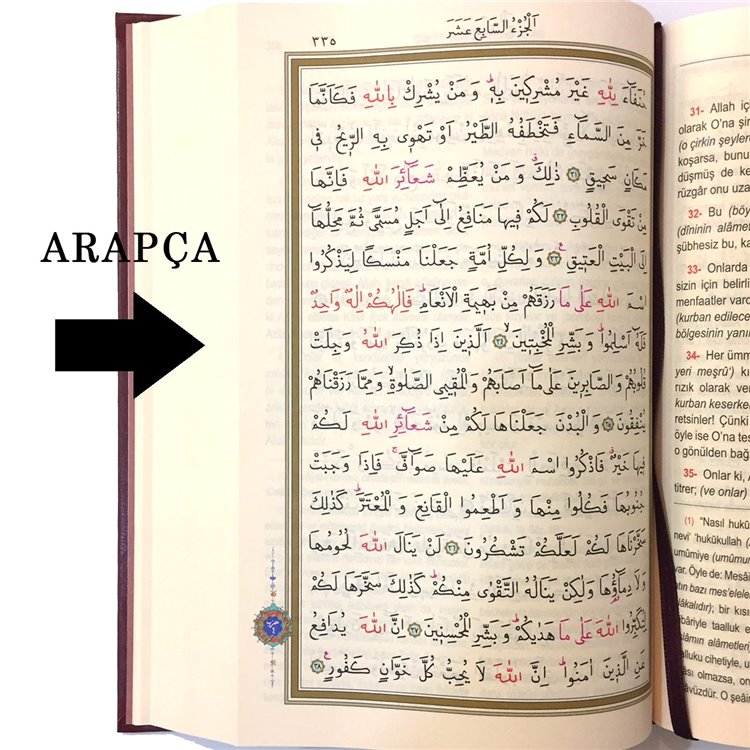 ٣٣٥
اَلْجُزْءُ السَّابِعَ عَشَرَ
حُنَفَٓاءَ لِلّٰهِ غَيْرَ مُشْرِك۪ينَ بِه۪ۜ وَ مَنْ يُشْرِكْ بِاللّٰهِ فَكَاَنَّمَا
خَرَّ مِنَ السَّمَٓاءِ فَتَخْطَفُهُ الطَّيْرُ اَوْ تَهْو۪ى بِهِ الرّ۪يحُ ف۪ى
مَكَانٍ سَح۪يقٍ ﴿٣١﴾ ذٰلِكَ وَ مَنْ يُعَظِّمْ شَعَٓائِرَ اللّٰهِ فَاِنَّهَا
مِنْ تَقْوَى الْقُلُوبِ ﴿٣٢﴾ لَكُمْ ف۪يهَا مَنَافِعُ اِلٰٓى اَجَلٍ مُسَمًّى ثُمَّ مَحِلُّهَٓا
اِلَى الْبَيْتِ الْعَت۪يقِ ﴿٣٣﴾ وَ لِكُلِّ اُمَّةٍ جَعَلْنَا مَنْسَكًا لِيَذْكُرُوا
اسْمَ اللّٰهِ عَلٰى مَا رَزَقَهُمْ مِنْ بَه۪يمَةِ الْاَنْعَامِۜ فَاِلٰهُكُمْ اِلٰهٌ وَاحِدٌ
فَلَهُٓ اَسْلِمُواۜ وَ بَشِّرِ الْمُخْبِت۪ينَۙ ﴿٣٤﴾ اَلَّذ۪ينَ اِذَا ذُكِرَ اللّٰهُ وَجِلَتْ
قُلُوبُهُمْ وَ الصَّابِر۪ينَ عَلٰى مَٓا اَصَابَهُمْ وَ الْمُق۪يمِى الصَّلٰوةِۙ وَ مِمَّا رَزَقْنَاهُمْ
يُنْفِقُونَ ﴿٣٥﴾ وَ الْبُدْنَ جَعَلْنَاهَا لَكُمْ مِنْ شَعَٓائِرِ اللّٰهِ لَكُمْ
ف۪يهَا خَيْرٌۗ فَاذْكُرُوا اسْمَ اللّٰهِ عَلَيْهَا صَوَٓافَّۚ فَاِذَا وَجَبَتْ
جُنُوبُهَا فَكُلُوا مِنْهَا وَ اَطْعِمُوا الْقَانِعَ وَ الْمُعْتَرَّۜ كَذٰلِكَ
سَخَّرْنَاهَا لَكُمْ لَعَلَّكُمْ تَشْكُرُونَ ﴿٣٦﴾ لَنْ يَنَالَ اللّٰهَ لُحُومُهَا
وَ لَا دِمَٓاؤُ۬هَا وَلٰكِنْ يَنَالُهُ التَّقْوٰى مِنْكُمْۜ كَذٰلِكَ سَخَّرَهَا لَكُمْ
لِتُكَبِّرُوا اللّٰهَ عَلٰى مَا هَدٰيكُمْۜ وَ بَشِّرِ الْمُحْسِن۪ينَ ﴿٣٧﴾ اِنَّ اللّٰهَ يُدَافِعُ
عَنِ الَّذ۪ينَ اٰمَنُواۜ اِنَّ اللّٰهَ لَا يُحِبُّ كُلَّ خَوَّانٍ كَفُورٍ۟ ﴿٣٨﴾
ARAPÇA
31- Allah iç
olarak O'na şir
(o çirkin şeyleri
koşarsa, bunu
düşmüş de ke
rüzgâr onu uza
32- Bu (böy
(dîninin alâmet
şübhesiz bu, ka
33- Onlarda
sizin için belirli
menfaatler vard
(kurban edilece
bölgesinin yanı
34- Her ümm
yeri meşrû') kı
rızık olarak ver
kurban keserke
retsinler! Çünki
öyle ise O'na tes
o gönülden bağ
35- Onlar ki, A
titrer; (ve onlar)
(1) "Nasıl hukü
nevi' 'hukūkullah (A
umûmiye (umûmun
var. Öyle de: Mesâi
atın bazı mes'eleler
lâkalıdır); bir kısı
ibâriyle taalluk e
slâmın alâmetleri)
alluku cihetiyle, u
ası olmazsa, on
avüzdür. O şeâir